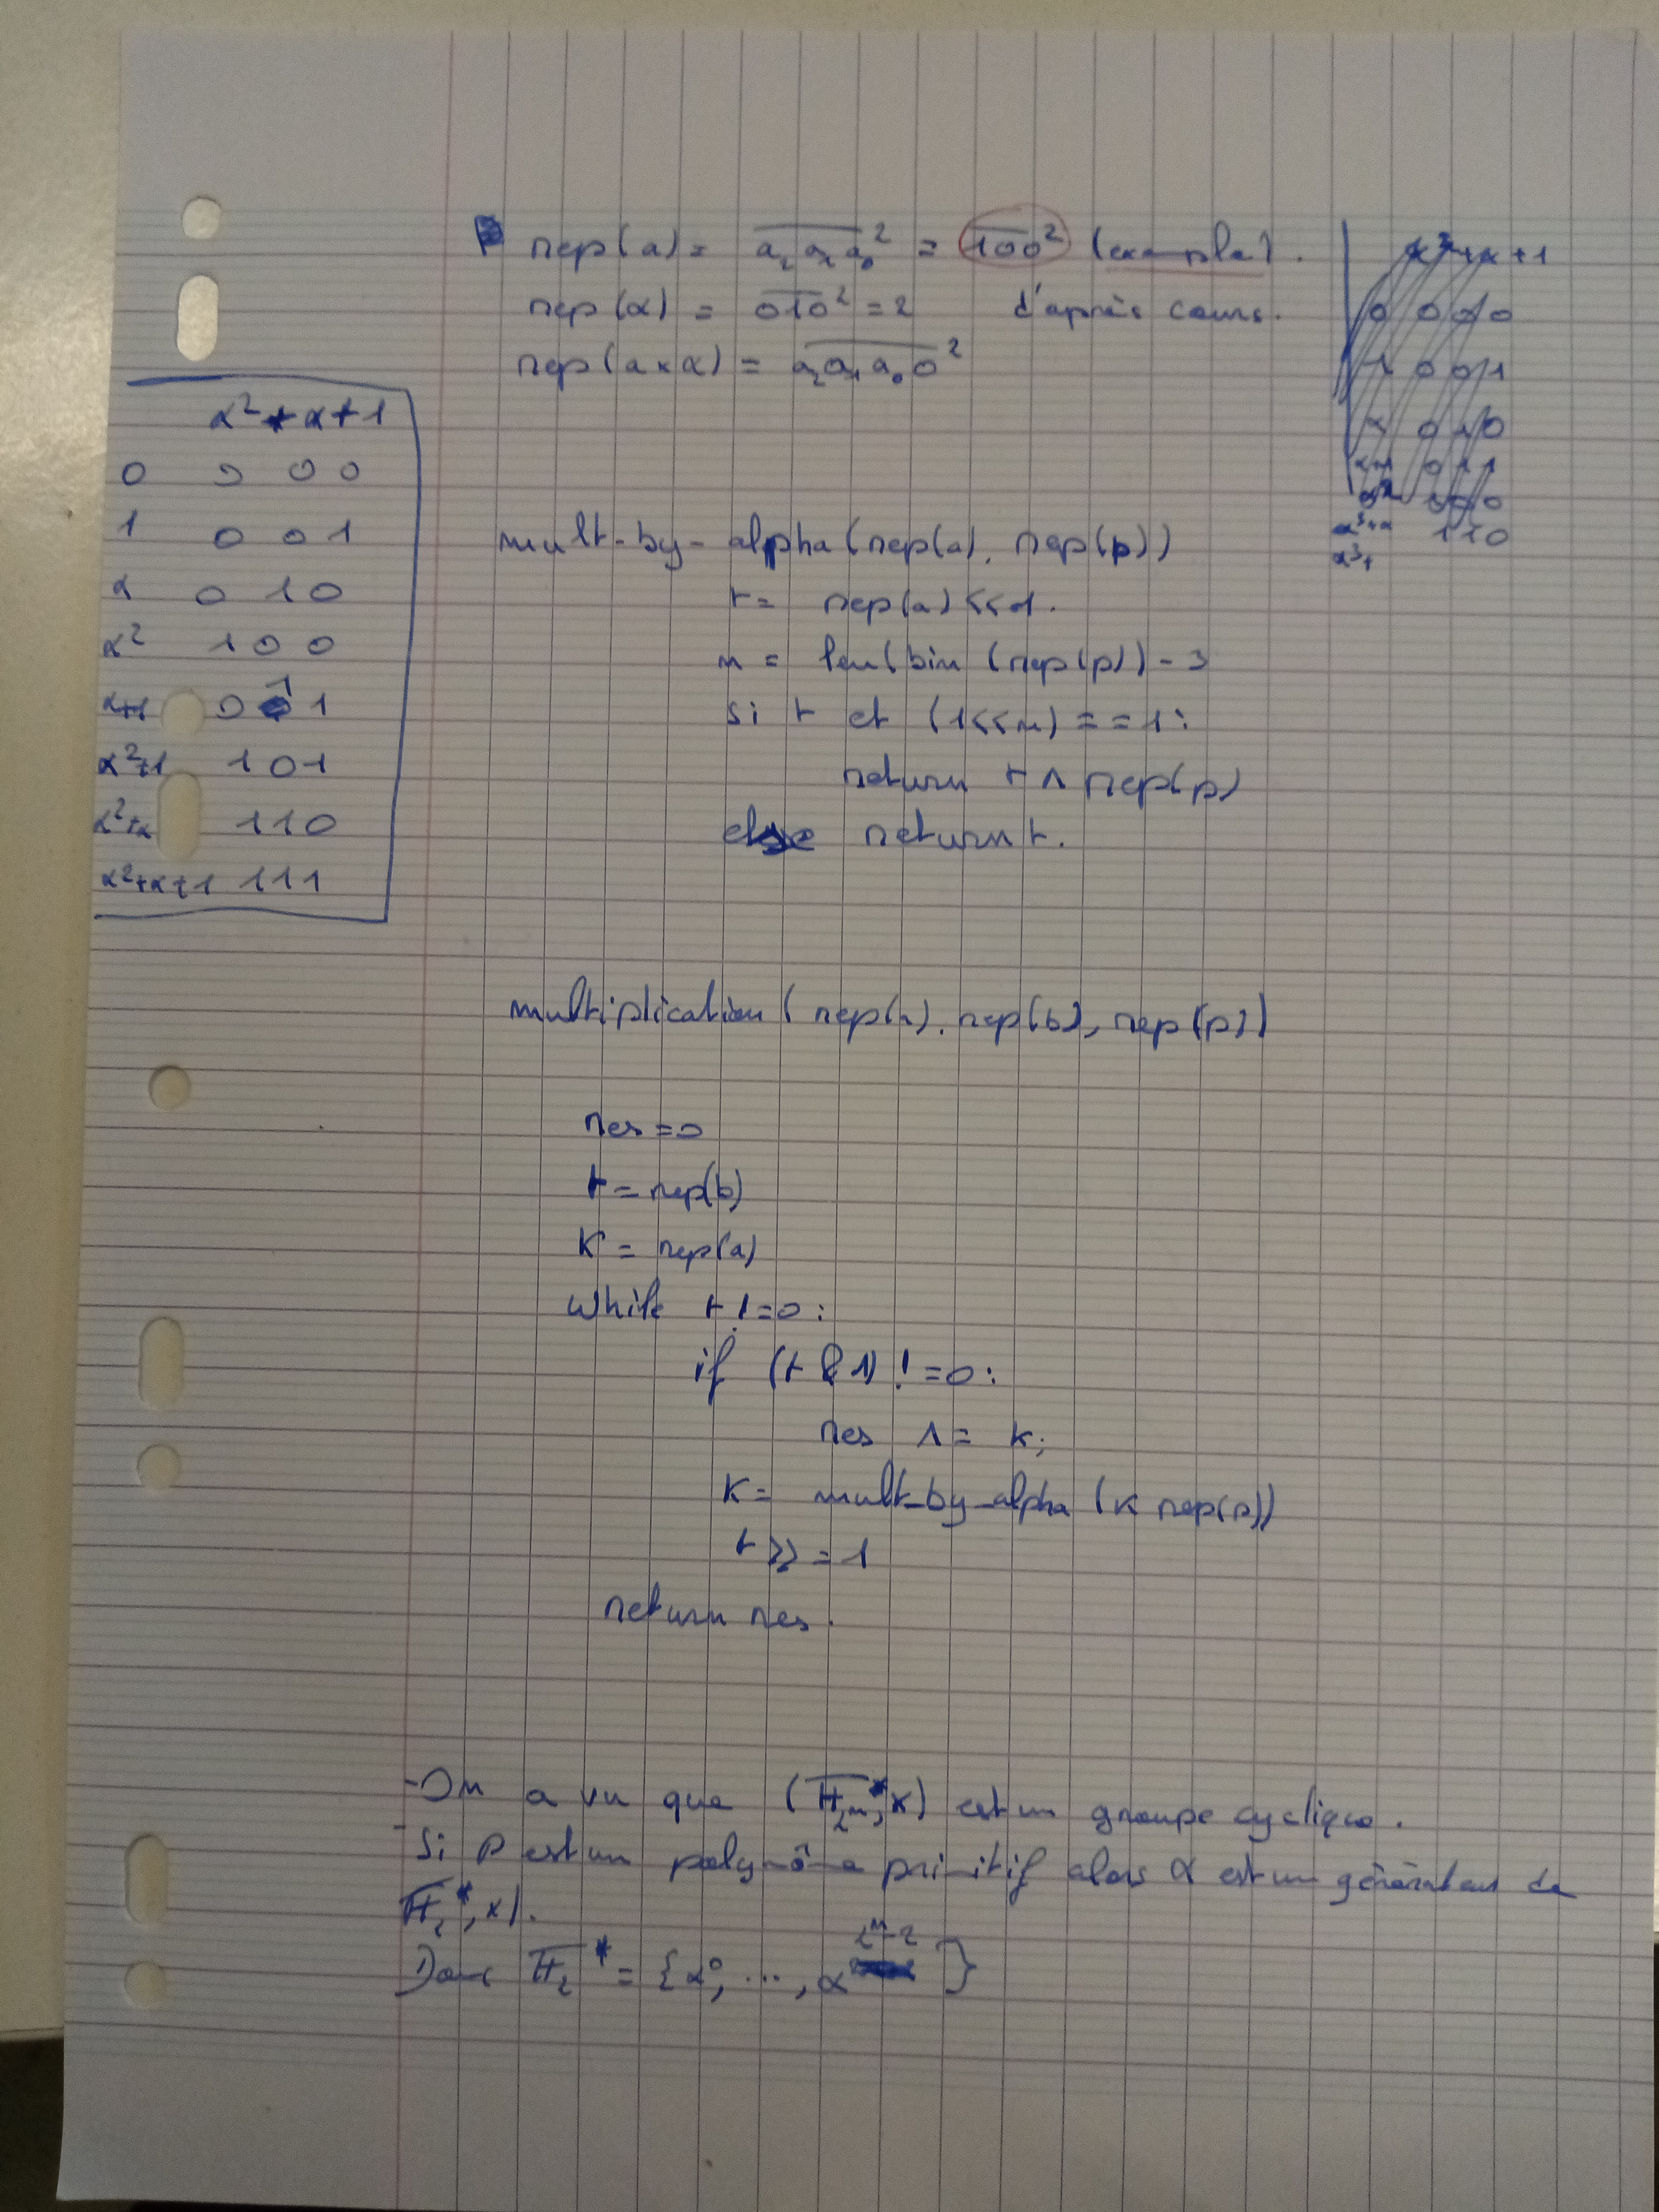 rep(a) = a₂a₁a₀² = 100² (example).
rep(α) = 010² = 2 d'après cours.
rep(a×α) = a₂a₁a₀0²
α² + α + 1
0 0 0 0
1 0 0 1
α 0 1 0
α² 1 0 0
α+1 0 1 1
α²+1 1 0 1
α²+α 1 1 0
α²+α+1 1 1 1
0 0 0 0
1 0 0 1
α 0 1 0
α+1 0 1 1
1 0 0
α³+α 1 1 0
α³+
mult-by-alpha(rep(a), rep(p))
t = rep(a) << 1.
n = len(bin(rep(p)) - 3
si t et (1<<n) == 1:
return t ^ rep(p)
else return t.
multiplication(rep(a), rep(b), rep(p))
res = 0
t = rep(b)
K = rep(a)
while t != 0:
if (t & 1) != 0:
res ^= k;
K = mult_by_alpha(K rep(p))
t >>= 1
return res.
- On a vu que (F₂ₙ*, ×) est un groupe cyclique.
- Si P est un polynôme primitif alors α est un générateur de
F₂*, ×).
Donc F₂* = {α⁰, ..., α^2ⁿ-2}